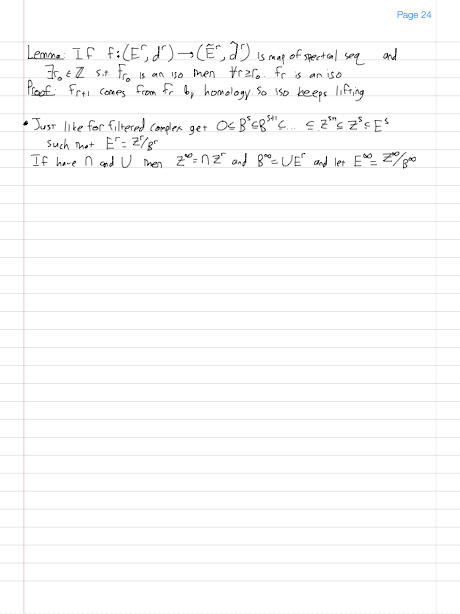 Page 24
Lemma: If f:(Eʳ, dʳ) → (Ẽʳ, d̃ʳ) is map of spectral seq and
∃r₀ ∈ ℤ s.t. f_r₀ is an iso then ∀r≥r₀. fr is an iso
Proof: fr+1 comes from fr by homology. So iso keeps lifting
• Just like for filtered complex get 0 ⊆ Bˢ ⊆ Bˢ⁺¹ ⊆ ... ⊆ Zˢ⁺¹ ⊆ Zˢ ⊆ Eˢ
such that Eʳ = Zʳ/Bʳ
If have ∩ and ∪ then Z^∞ = ∩Zʳ and B^∞ = ∪Eʳ and let E^∞ = Z^∞/B^∞